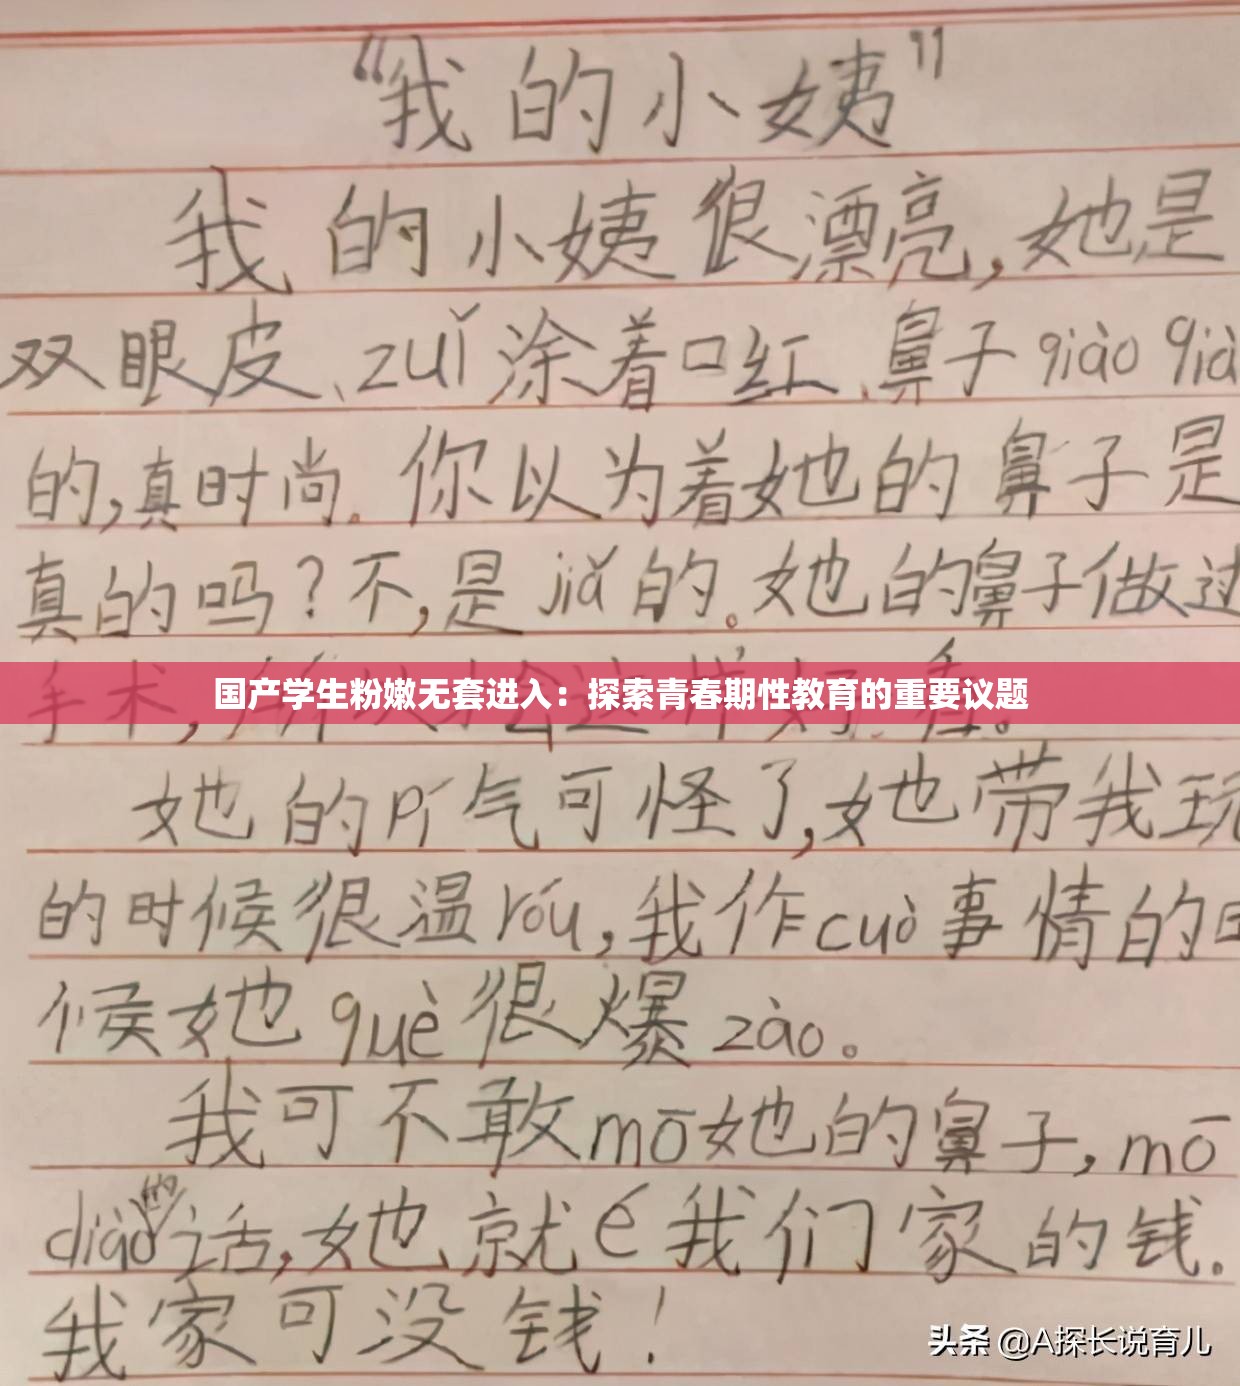 “我的小姨”
我的小姨很漂亮,她是
双眼皮、zuǐ涂着口红、鼻子qiào qià
的,真时尚。你以为着她的鼻子是
真的吗?不,是jiǎ的。她的鼻子做过
手术,所以才会这样好看。
国产学生粉嫩无套进入：探索青春期性教育的重要议题
她的pí气可怪了,她带我玩
的时候很温róu,我作cuò事情的
候她què很爆zào。
我可不敢mō她的鼻子,mō
diào的话,她就é我们家的钱.
我家可没钱!
头条 @A探长说育儿